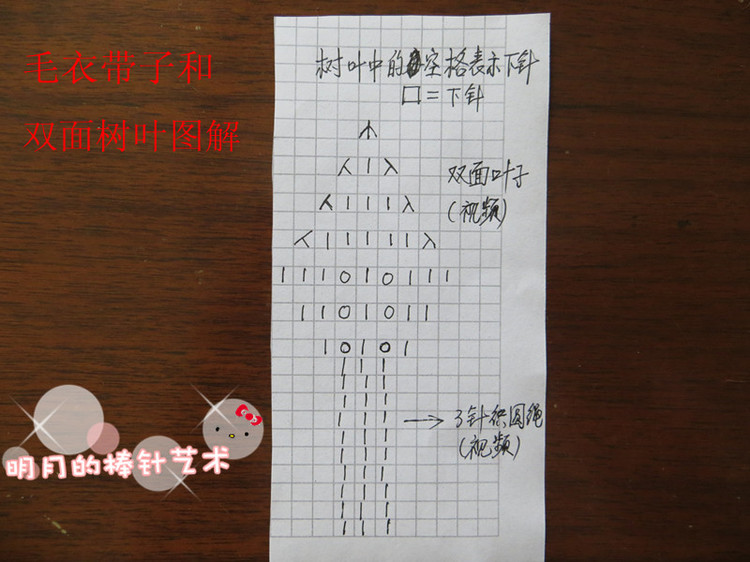 毛衣带子和
双面树叶图解
树叶中的空格表示下针
□=下针
双面叶子
(视频)
人 | 入
人 | | | 入
人 | | | | | 入
| | | O | O | | |
| | O | O | |
| O | O |
| | |
| | |
| | |
| | |
| | |
| | |
| | |
| | |
| | |
→ 3针织圆绳
(视频)
明月的棒针艺术